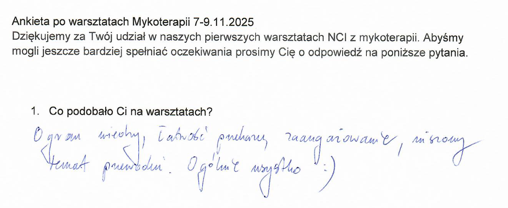 Ankieta po warsztatach Mykoterapii 7-9.11.2025
Dziękujemy za Twój udział w naszych pierwszych warsztatach NCI z mykoterapii. Abyśmy
mogli jeszcze bardziej spełniać oczekiwania prosimy Cię o odpowiedź na poniższe pytania.
1. Co podobało Ci na warsztatach?
Ogrom wiedzy, łatwość przekazu, zaangażowanie,
temat przewodni. Ogólnie wszystko :)